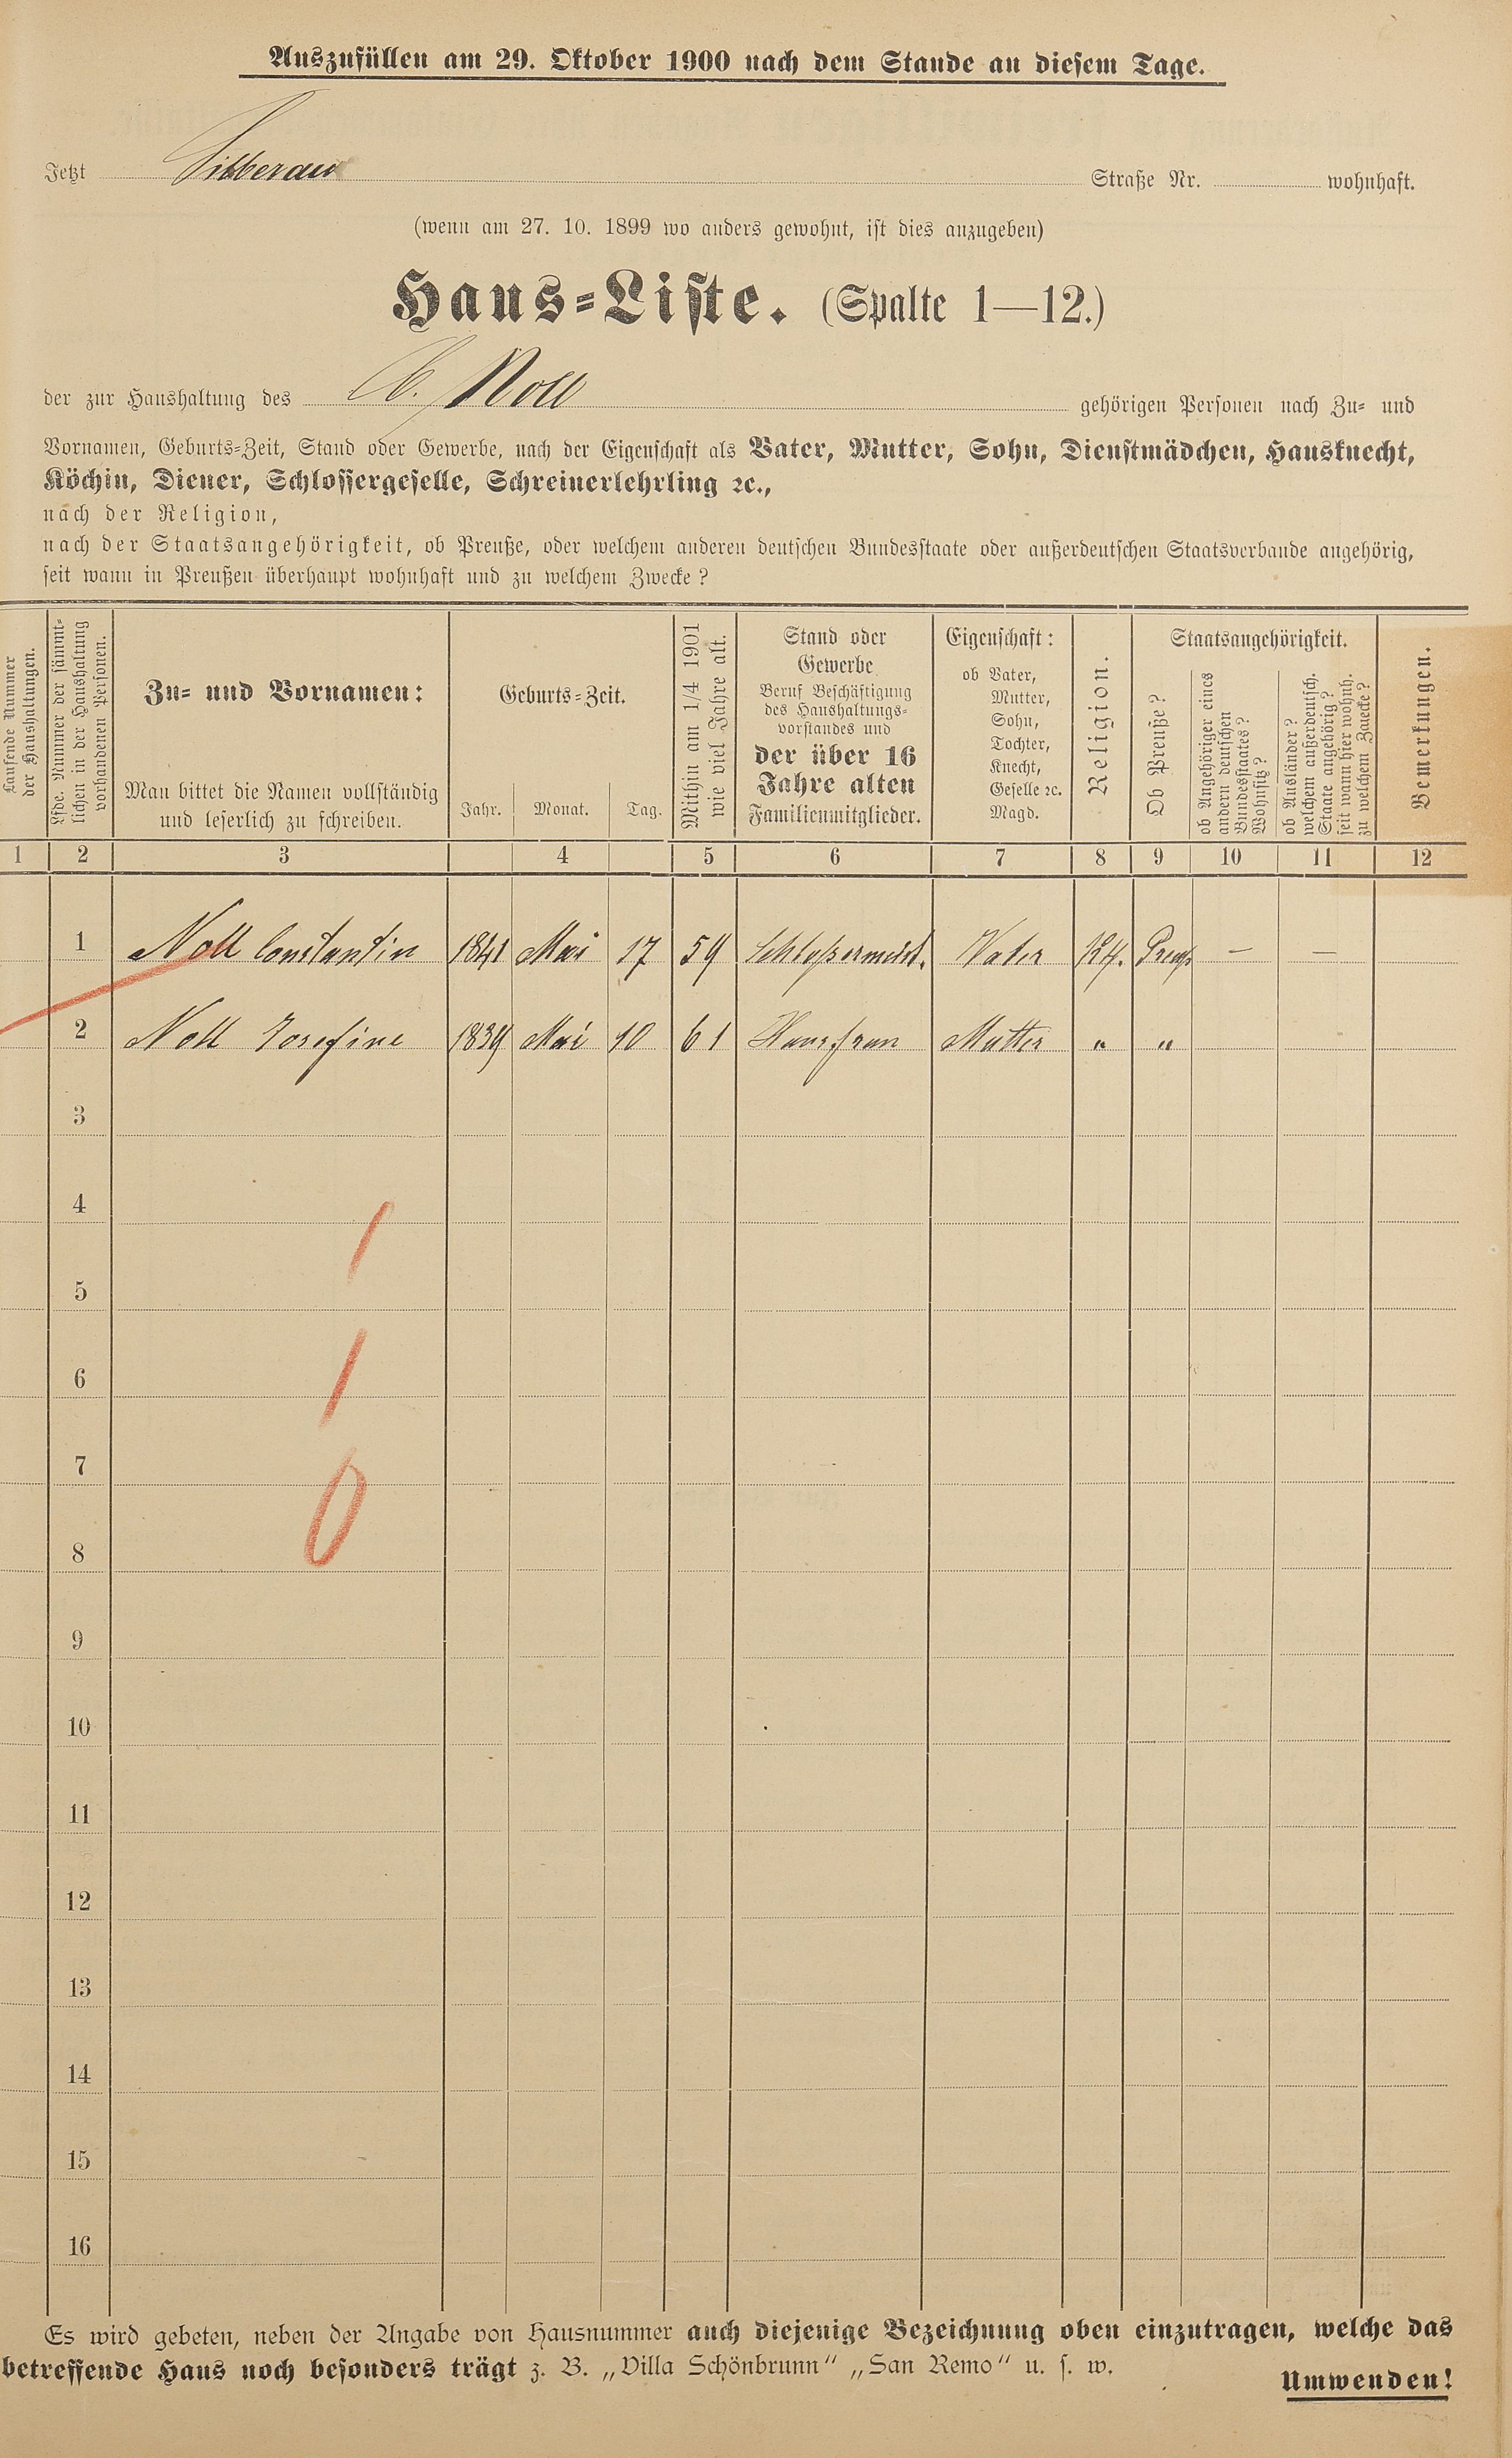 Auszufüllen am 29. Oktober 1900 nach dem Stande an diesem Tage.
Jetzt Silberau Straße Nr. wohnhaft.
(wenn am 27. 10. 1899 wo anders gewohnt, ist dies anzugeben)
Haus-Liste. (Spalte 1—12.)
der zur Haushaltung des C. Noll gehörigen Personen nach Zu- und
Vornamen, Geburts-Zeit, Stand oder Gewerbe, nach der Eigenschaft als Vater, Mutter, Sohn, Dienstmädchen, Hausknecht,
Köchin, Diener, Schlossergeselle, Schreinerlehrling ꝛc.,
nach der Religion,
nach der Staatsangehörigkeit, ob Preuße, oder welchem anderen deutschen Bundesstaate oder außerdeutschen Staatsverbande angehörig,
seit wann in Preußen überhaupt wohnhaft und zu welchem Zwecke?
Laufende Nummer
der Haushaltungen.
Lfde. Nummer der sämmt-
lichen in der Haushaltung
vorhandenen Personen.
Zu- und Vornamen:
Man bittet die Namen vollständig
und leserlich zu schreiben.
Geburts-Zeit.
Jahr. Monat. Tag.
Mithin am 1/4 1901
wie viel Jahre alt.
Stand oder
Gewerbe
Beruf Beschäftigung
des Haushaltungs-
vorstandes und
der über 16
Jahre alten
Familienmitglieder.
Eigenschaft:
ob Vater,
Mutter,
Sohn,
Tochter,
Knecht,
Geselle ꝛc.
Magd.
Religion.
Staatsangehörigkeit.
Ob Preuße?
ob Angehöriger eines
andern deutschen
Bundesstaates?
Wohnsitz?
ob Ausländer?
welchem außerdeutsch.
Staate angehörig?
seit wann hier wohnh.
zu welchem Zwecke?
Bemerkungen.
1 2 3 4 5 6 7 8 9 10 11 12
1 Noll Constantin 1841 Mai 17 59 Schloßermeist. Vater Preuß — —
2 Noll Josefine 1839 Mai 10 61 Hausfrau Mutter " "
3
4
5
6
7
8
9
10
11
12
13
14
15
16
1
1
0
Es wird gebeten, neben der Angabe von Hausnummer auch diejenige Bezeichnung oben einzutragen, welche das
betreffende Haus noch besonders trägt z. B. „Villa Schönbrunn" „San Remo" u. s. w.
Umwenden!